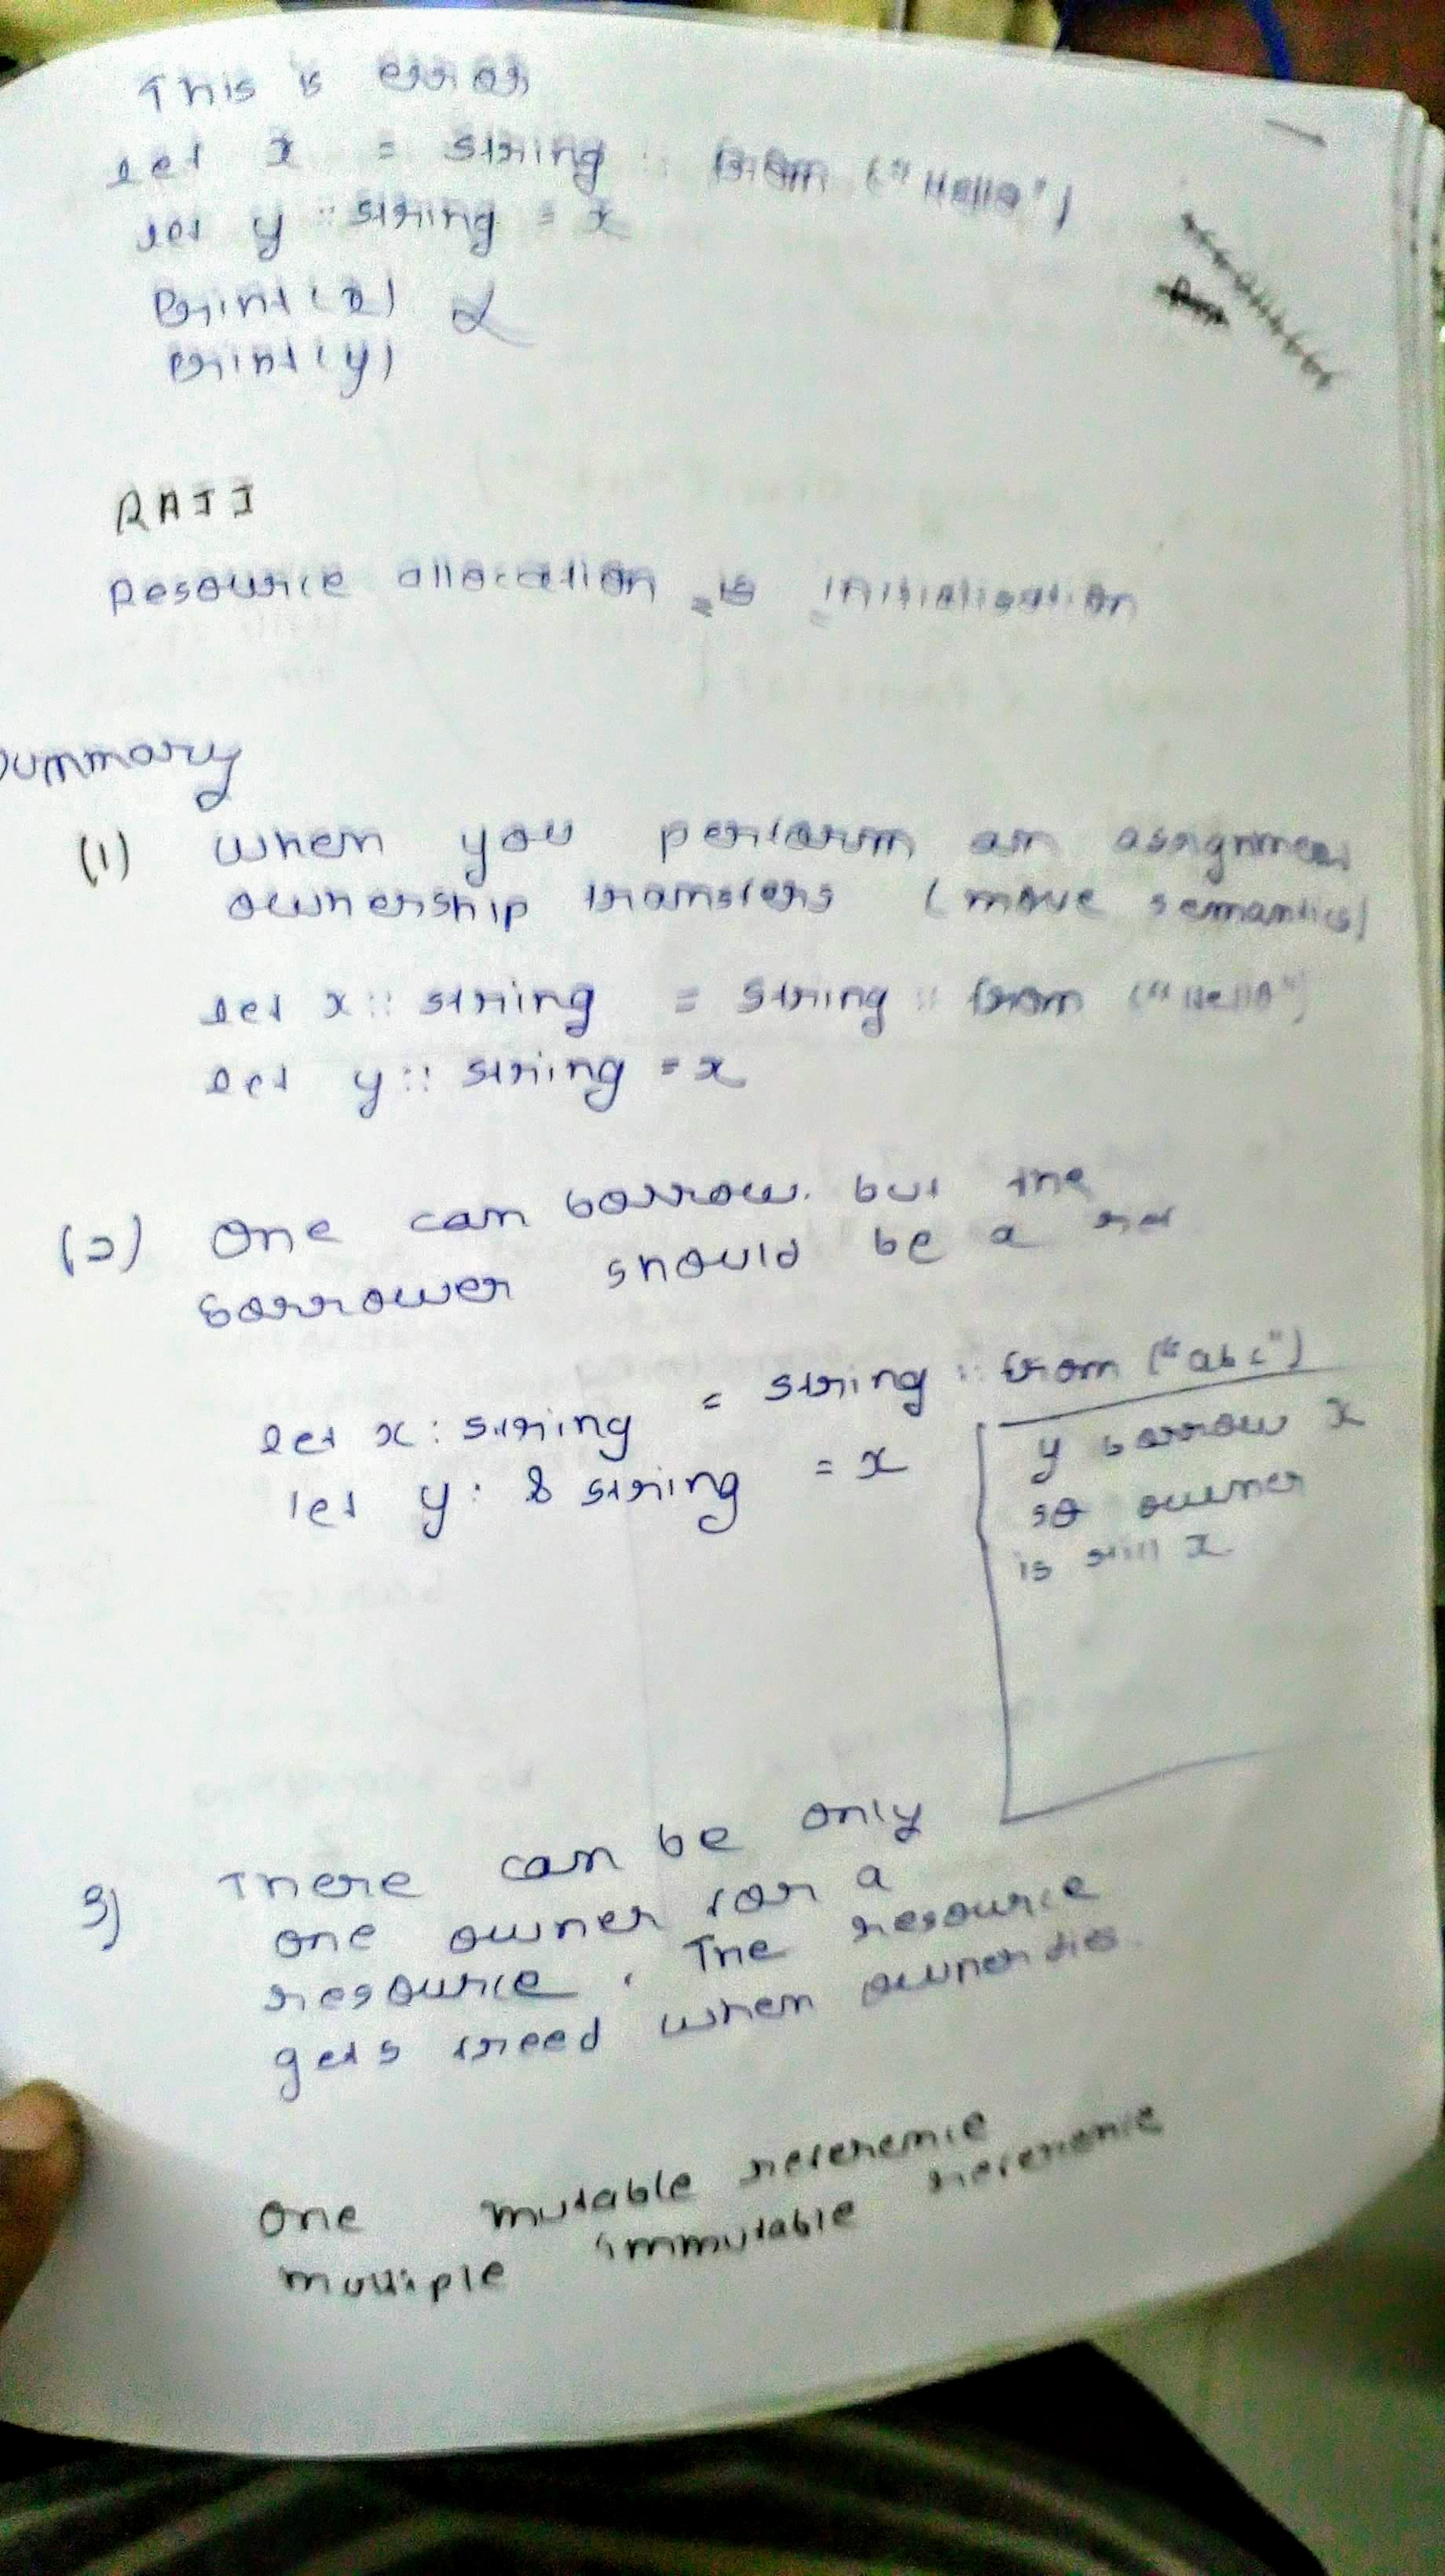 This is error
let x = string :: from ("Hello")
let y :: string = x
Print(x)
Print(y)
RAII
Resource allocation is initialisation
Summary
(1) When you perform an assignment
ownership transfers (move semantics)
let x :: string = string :: from ("Hello")
let y :: string = x
(2) One can borrow. but the
borrower should be a ref
let x : string = string :: from ("abc")
let y : & string = x
y borrow x
so owner
is still x
3) There can be only
one owner for a
resource. The resource
gets freed when owner dies.
One mutable reference
multiple immutable reference